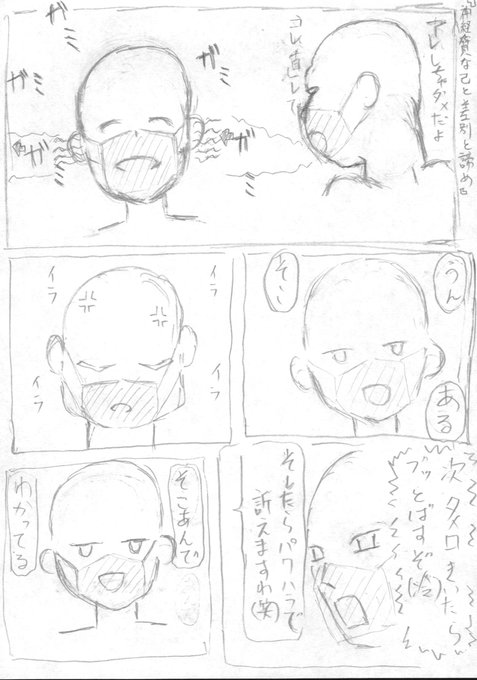 神経質な己と差別と諦め
アレしちゃダメだよ
コレ直して
ガミ
ガミ
ガミ
ガミ
ガミ
ガミ
うん
ある
そこ
イラ
イラ
イラ
イラ
次タメ口きいたら
ブッとばすぞ
そしたらパワハラで
訴えますわ(笑)
そこあんで
わかってる